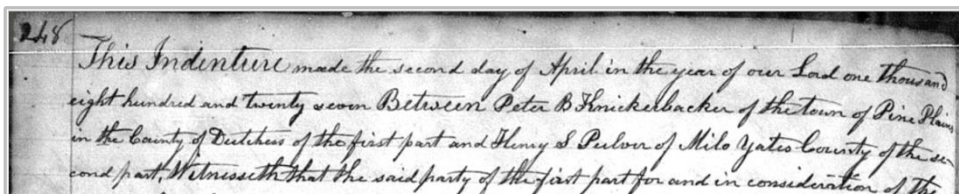 248
This Indenture made the second day of April in the year of our Lord one thousand
eight hundred and twenty seven Between Peter B Knickerbacker of the town of Pine Plains
in the County of Dutchess of the first part and Henry S Pulver of Milo Yates County of the se
cond part, Witnesseth that the said party of the first part for and in consideration of the